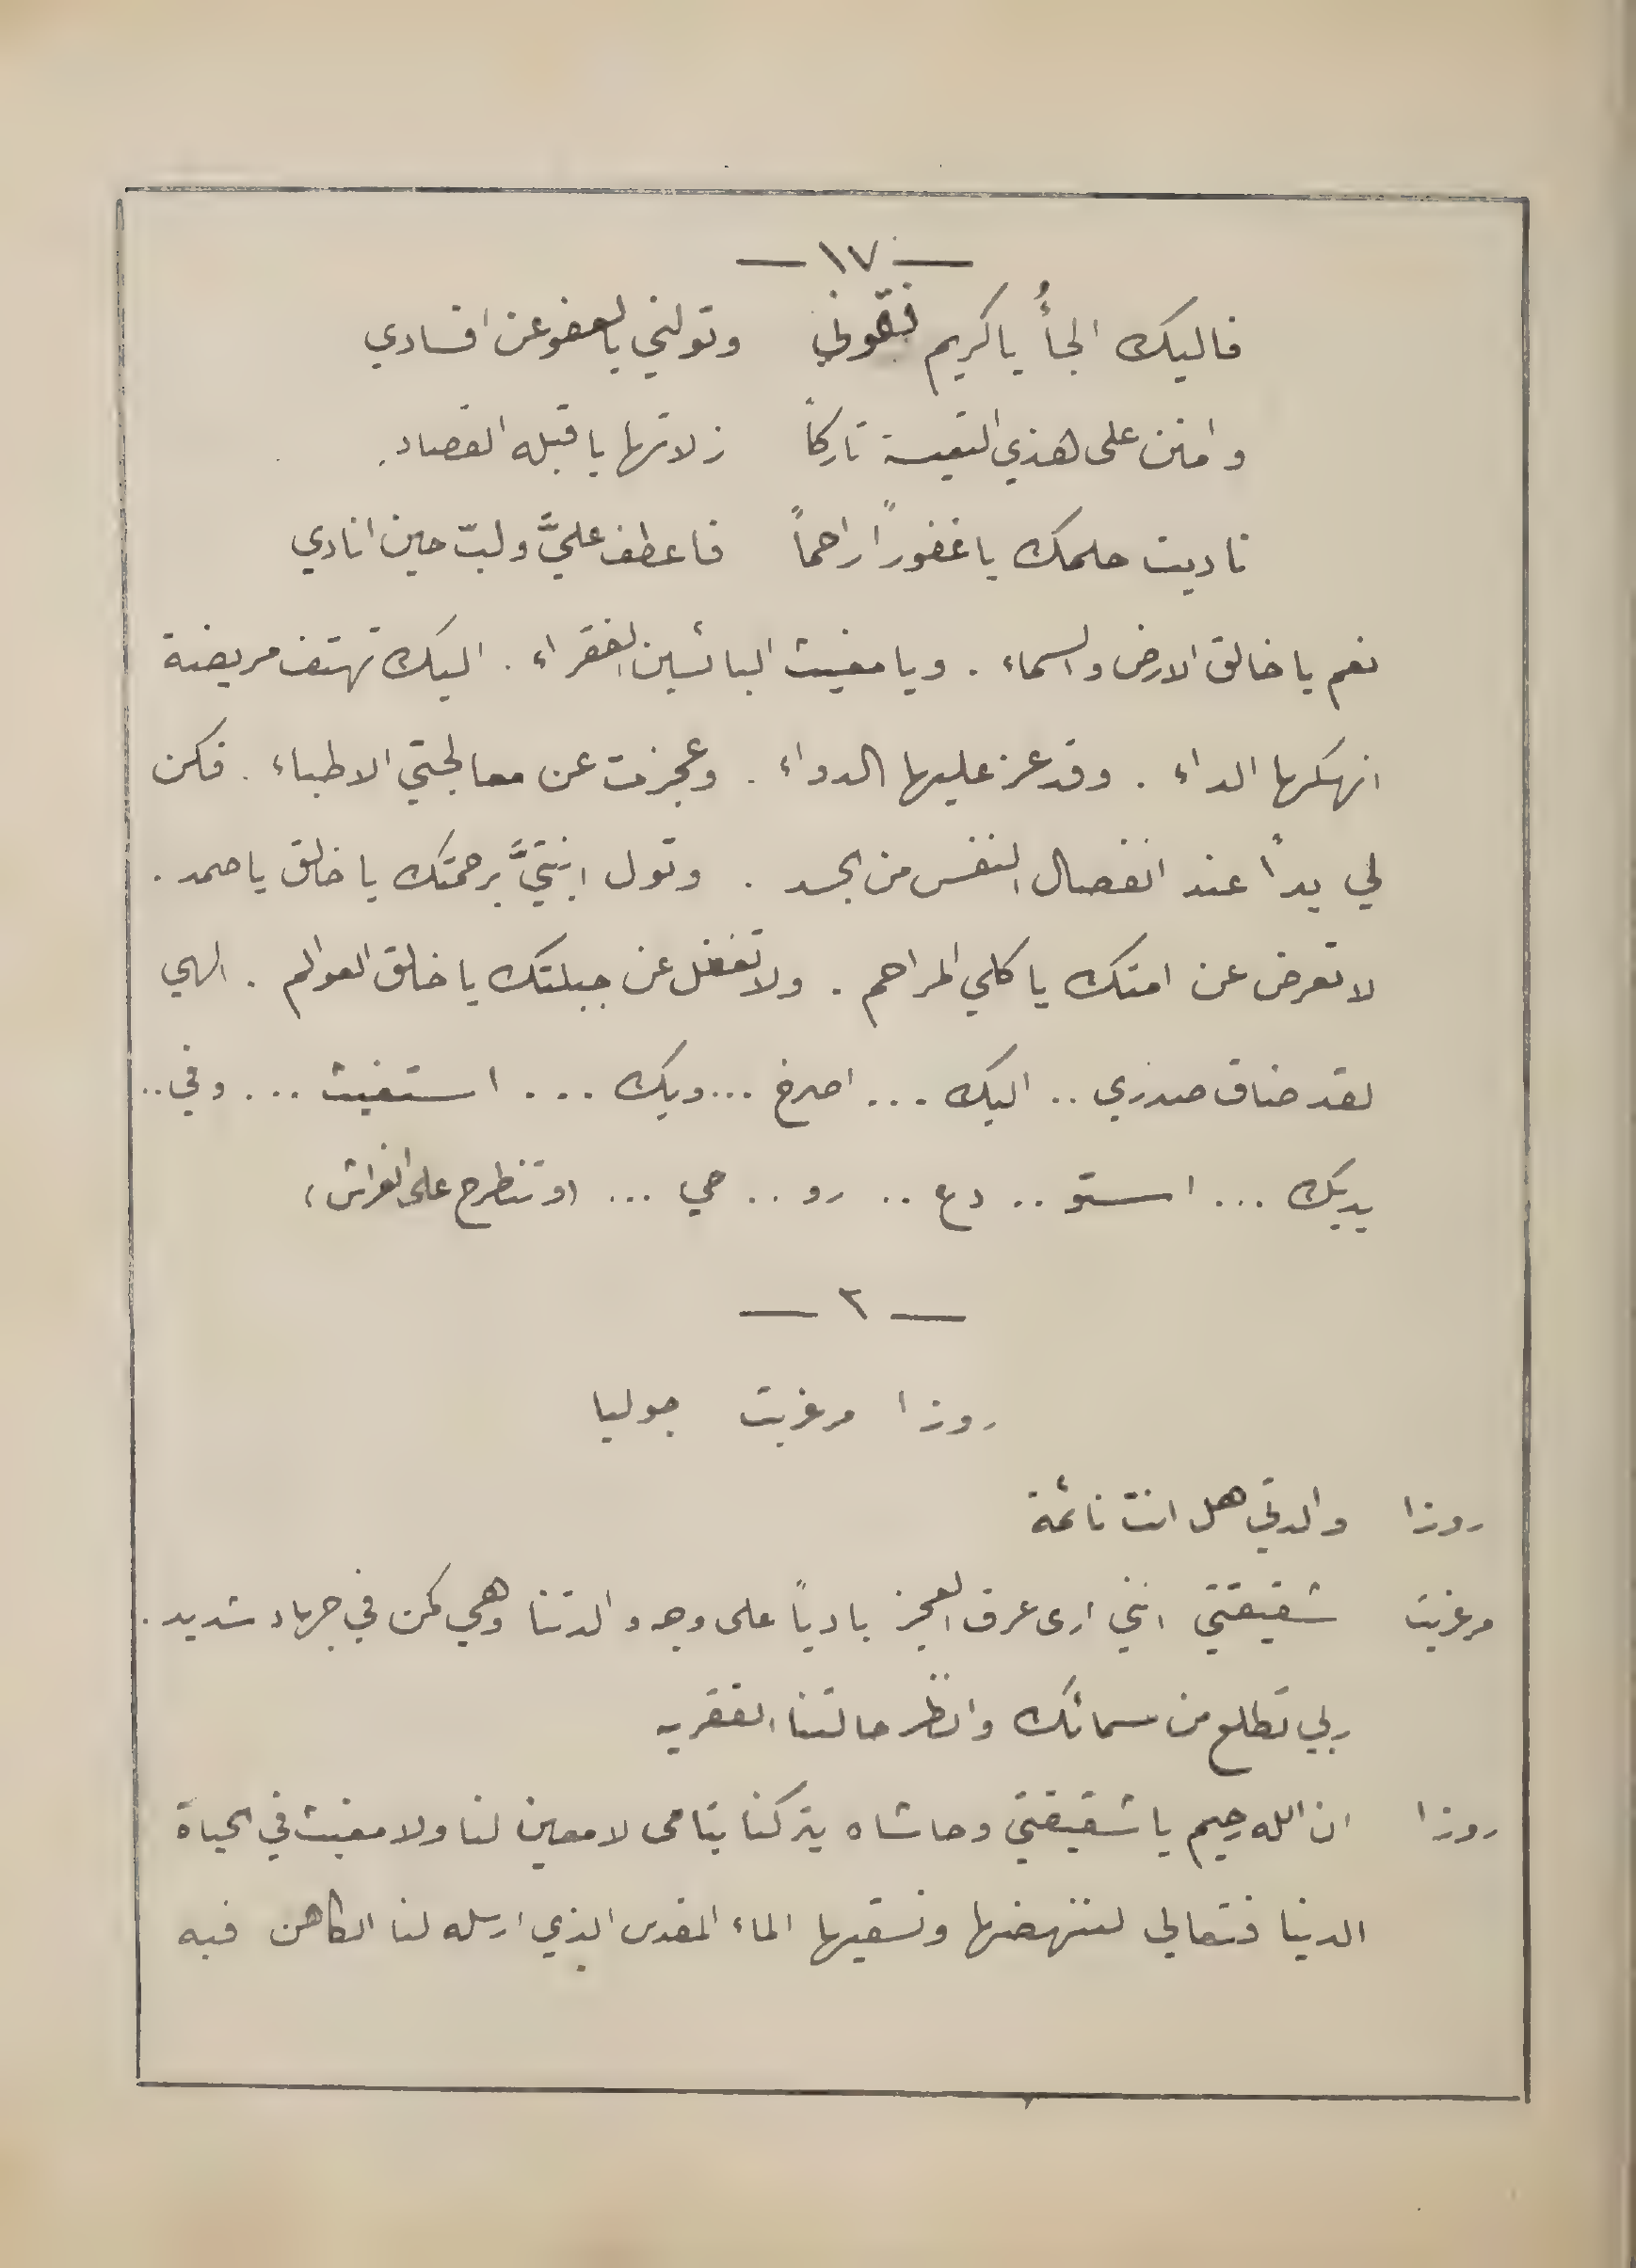 — ١٧ —
فاليك الجأُ يا كريم فقوّني وتولني بالعفو عن افسادي
وامنن على هذي التعيسة تاركاً زلاتها يا قبله القصاد.
ناديت حلمك يا غفوراً راحماً فاعطف عليَّ ولبّ حين انادي
نعم يا خالق الارض والسماء . ويا مغيث البائسين الفقراء . اليك تهتف مريضة
انهكها الداء . وقد عز عليها الدواء . وعجزت عن معالجتي الاطباء . فكن
لي يداً عند انفصال النفس من الجسد . وتول ابنتيَّ برحمتك يا خالق يا صمد .
لا تعرض عن امتك يا كلي المراحم . ولا تغفل عن جبلتك يا خالق العوالم . الهي
لقد ضاق صدري .. اليك ... اصرخ ... وبك ... استغيث ... وفي ..
يديك ... استو .. دع .. رو .. حي ... (وتنطرح على الفراش)
— ٢ —
روزا مرغريت جوليا
روزا والدتي هل انت نائمة
مرغريت شقيقتي انني ارى عرق العجز بادياً على وجه والدتنا وهي كمن في جهاد شديد .
ربي تطلع من سمائك وانظر حالتنا الفقريه
روزا ان الله رحيم يا شقيقتي وحاشاه يتركنا يتامى لا معين لنا ولا مغيث في الحياة
الدنيا فتعالي لننهضها ونسقيها الماء المقدس الذي ارسله لنا الكاهن فبه